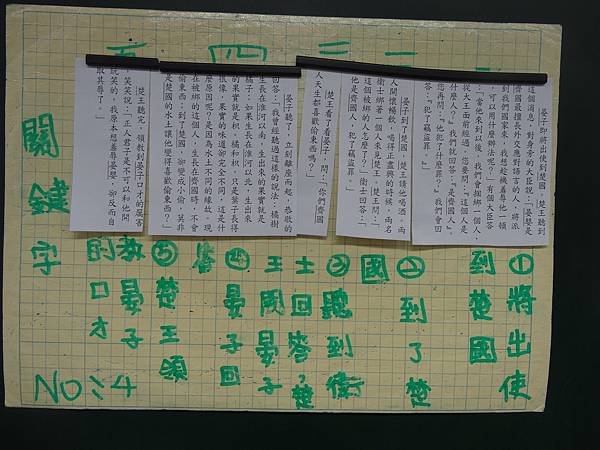 一
二
三
四
五
晏子即將出使到楚國。楚王聽到
這個消息，對身旁的大臣說：「晏嬰是
齊國最擅長外交應對語言的人，將派
到我們國家來，我想趁機羞辱他一頓
，可以用什麼辦法呢？」有個大臣答
：「當他來到以後，我們會綑綁一個人，
從大王面前經過，您要問：『這個人是
什麼人？』我們就回答：『是齊國人。』
您再問：『他犯了什麼罪？』我們會回
答：『犯了竊盜罪。』」
晏子到了楚國，楚王請他喝酒。兩
人開懷暢飲，喝得正盡興的時候，兩名
衛士綁著一個人來見楚王。楚王問：「
這個被綁的人怎麼了？」衛士回答：「
他是齊國人，犯了竊盜罪。」
楚王看了看晏子，問：「你們齊國
人天生都喜歡偷東西嗎？」
晏子聽了，立刻離座而起，恭敬的
回答：「我曾經聽過這樣的說法：橘樹
生長在淮河以南，生出來的果實就是
橘子；如果生長在淮河以北，生出來
的果實就是枳。橘和枳，只是葉子長得
很像，果實的味道卻完全不同，這是什
麼原因呢？是因為水土不同的緣故。現
在被綁的這個人，生長在齊國時，不會
偷東西，到了楚國，卻變成小偷，莫非
是楚國的水土讓他變得喜歡偷東西？」
楚王聽完，領教到晏子口才的厲害
，笑笑說：「正人君子是不可以和他開
玩笑的，我原本想羞辱晏嬰，卻反而自
取其辱了。」
①將出使
到楚國
㊁到了楚
國
㊂聽到衛
士回答，楚
王問晏子
㊃晏子回
答
㊄楚王領
教晏子
的口才
關鍵字
NO:4